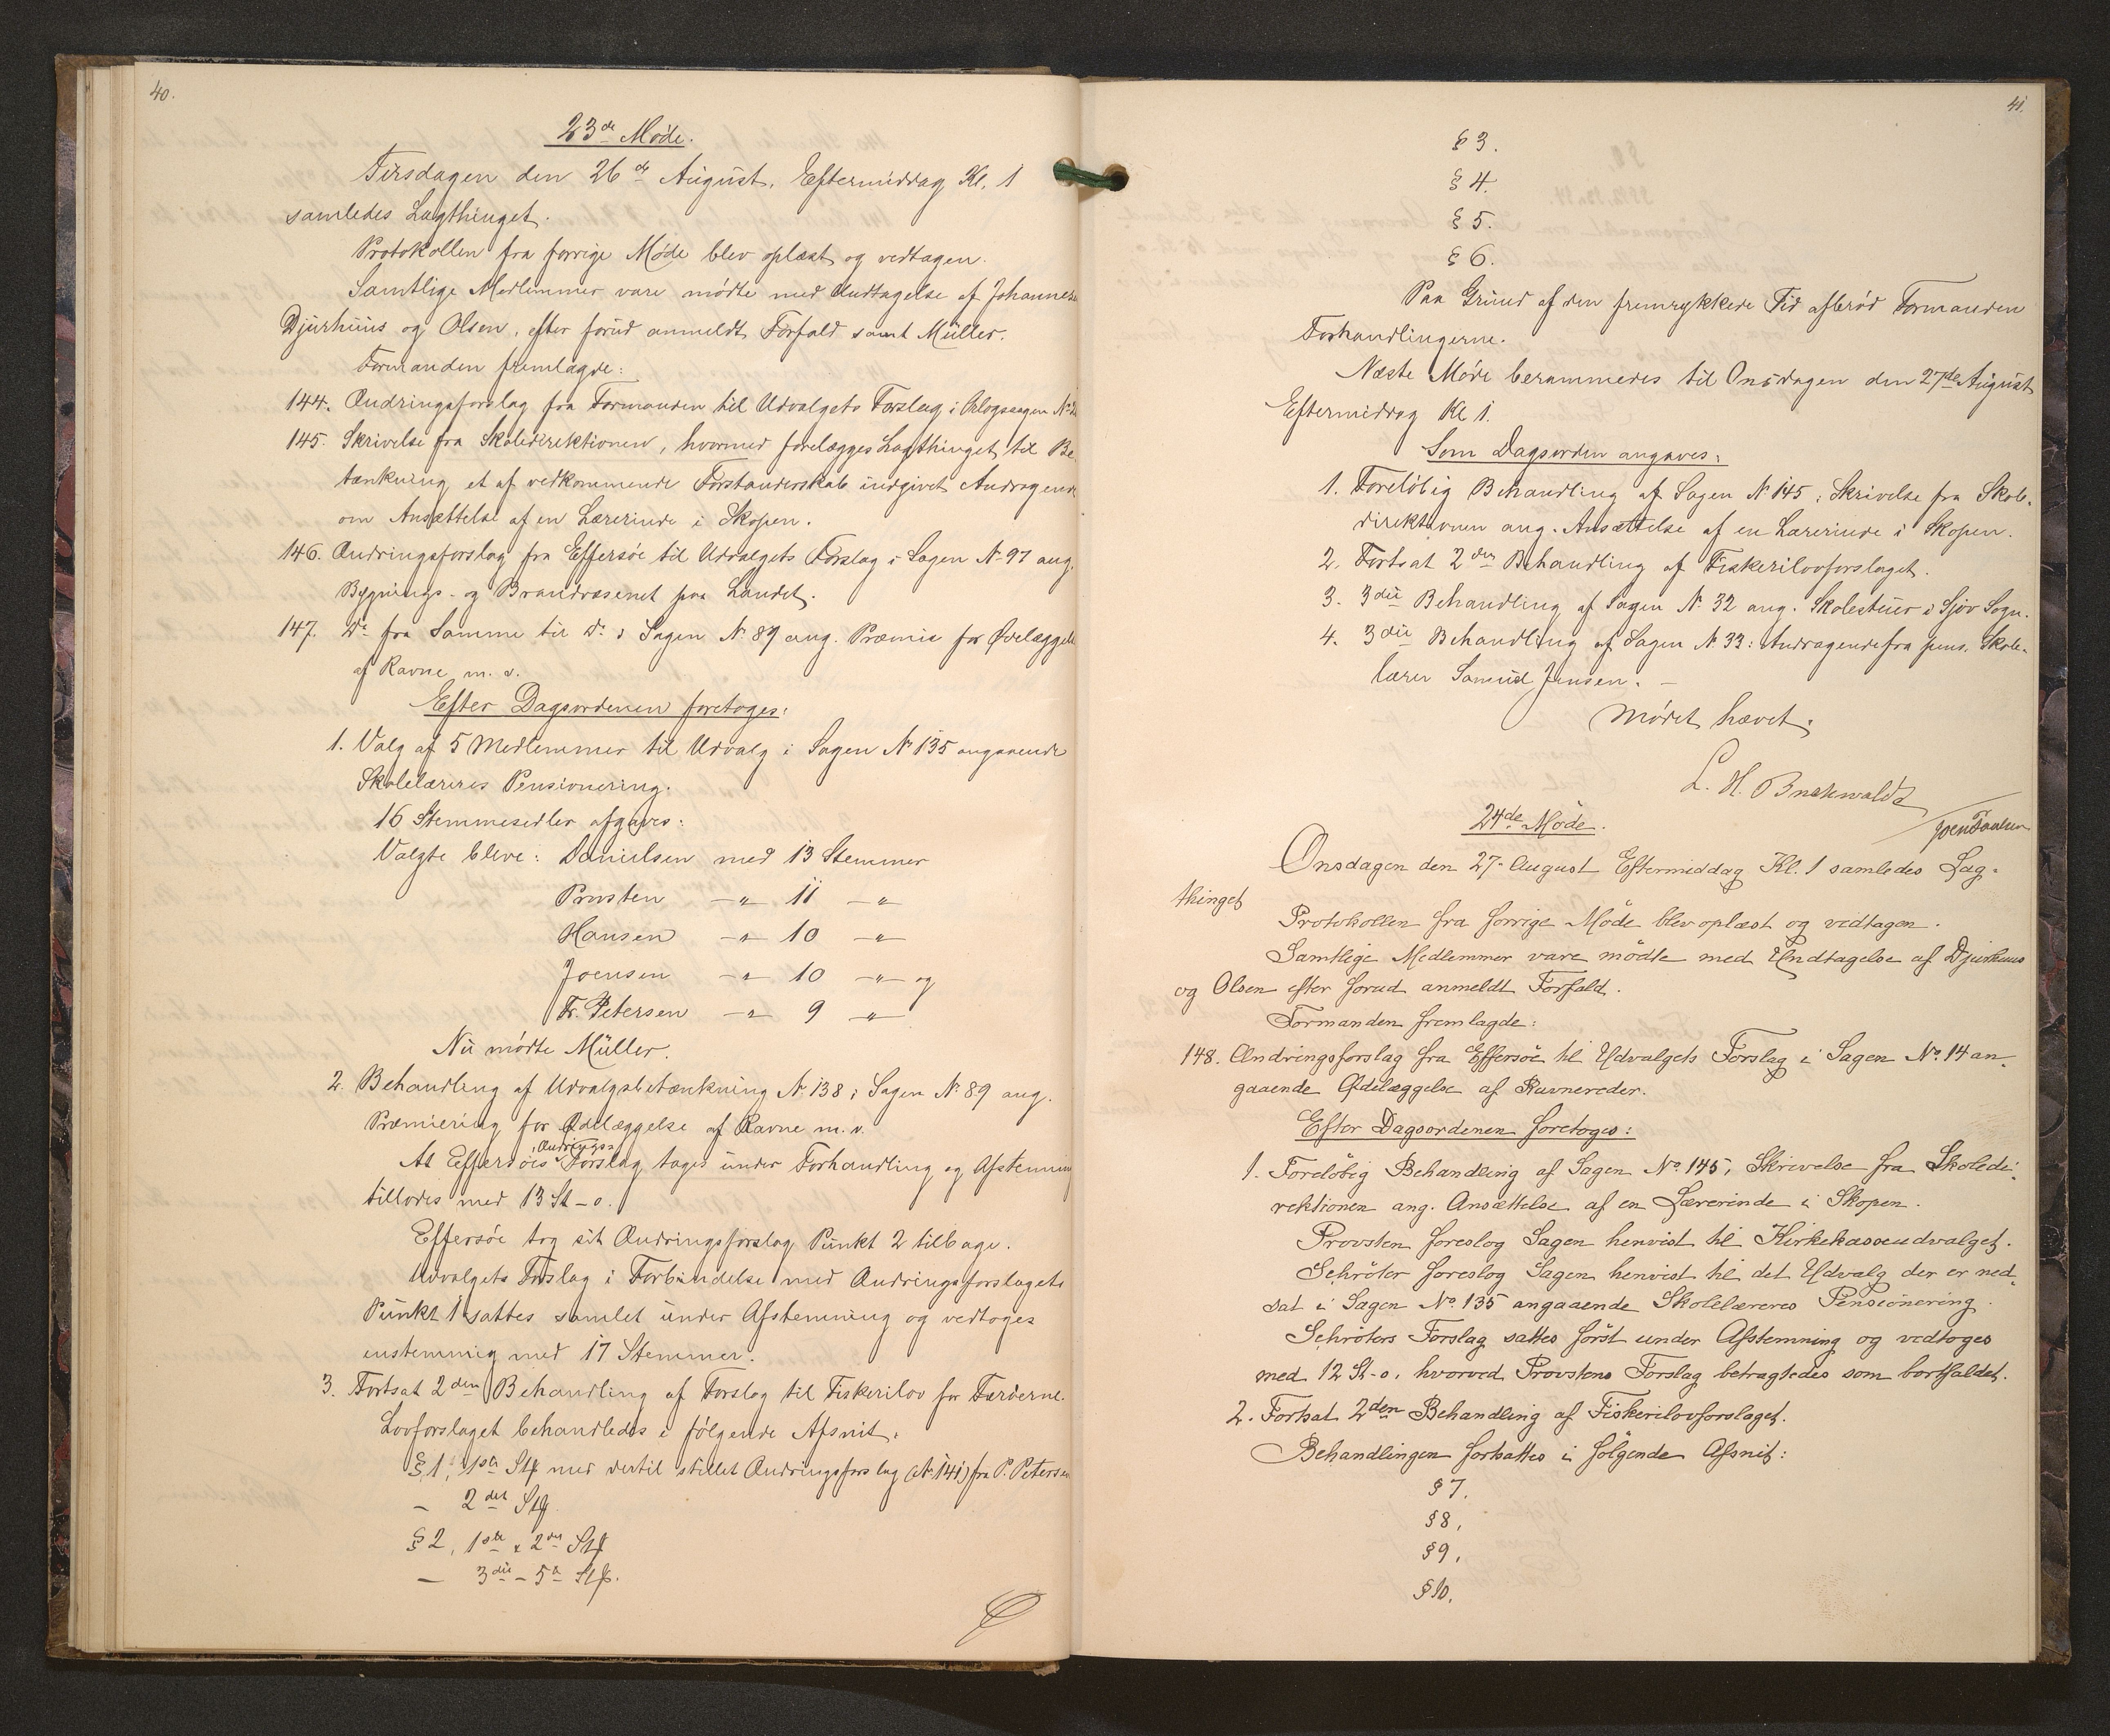 40.
23de Møde.
Tirsdagen den 26de August, Eftermiddag Kl. 1
samledes Lagthinget.
Protokollen fra forrige Møde blev oplæst og vedtagen.
Samtlige Medlemmer vare mødte med Undtagelse af Johannese
Djurhuus og Olsen, efter forud anmeldt Forfald samt Müller.
Formanden fremlagde:
144. Ændringsforslag fra Formanden til Udvalgets Forslag i
145. Skrivelse fra Skoledirektionen, hvormed forelægges Lagthinget til Be-
tænkning et af vedkommende Forstanderskab indgivet Andragende
om Ansættelse af en Lærerinde i Skopen.
146. Ændringsforslag fra Effersøe til Udvalgets Forslag i Sagen No 97 ang.
Bygnings- og Brandvæsenet paa Landet.
147. Do fra Samme til Do i Sagen No 89 ang. Præmie for Ødelæggelse
af Ravne m. v.
Efter Dagsordenen foretoges:
1. Valg af 5 Medlemmer til Udvalg i Sagen No 135 angaaende
Skolelæreres Pensionering.
16 Stemmesedler afgaves:
Valgte bleve: Danielsen med 13 Stemmer
Provsten —"— 11 —"—
Hansen —"— 10 —"—
Joensen —"— 10 —"— og
Fr. Petersen —"— 9 —"—
Nu mødte Müller.
2. Behandling af Udvalgsbetænkning No 138 i Sagen No 89 ang.
Præmiering for Ødelæggelse af Ravne m.v.
At Effersöes Ændrings-Forslag tages under Forhandling og Afstemning
tillodes med 13 St - 0.
Effersöe tog sit Ændringsforslag Punkt 2 tilbage.
Udvalgets Forslag i Forbindelse med Ændringsforslagets
Punkt 1 sattes samlet under Afstemning og vedtoges
enstemmig med 17 Stemmer.
3. Fortsat 2den Behandling af Forslag til Fiskerilov for Færøerne.
Lovforslaget behandledes i følgende Afsnit:
§ 1, 1ste Stk med dertil stillet Ændringsforslag (No 141) fra P. Petersen
— 2det Stk.
§ 2, 1ste & 2det Stk
— 3die - 5te Stk.
41.
§ 3.
§ 4.
§ 5.
§ 6.
Paa Grund af den fremrykkede Tid afbrød Formanden
Forhandlingerne.
Næste Møde berammedes til Onsdagen den 27de August
Eftermiddag Kl 1.
Som Dagsorden angaves:
1. Foreløbig Behandling af Sagen No 145: Skrivelse fra Skole-
direktionen ang. Ansættelse af en Lærerinde i Skopen.
2. Fortsat 2den Behandling af Fiskerilovforslaget.
3. 3die Behandling af Sagen No 32 ang. Skolestuer i Sjov Sogn.
4. 3die Behandling af Sagen No 33: Andragende fra pens. Skole-
lærer Samuel Jensen. —
Mødet hævet.
L. H. Buchwaldt
Joen Poulsen
24de Møde.
Onsdagen den 27. August Eftermiddag Kl. 1 samledes Lag-
thinget
Protokollen fra forrige Møde blev oplæst og vedtagen.
Samtlige Medlemmer vare mødte med Undtagelse af Djurhuus
og Olsen efter forud anmeldt Forfald.
Formanden fremlagde:
148. Ændringsforslag fra Effersöe til Udvalgets Forslag i Sagen No. 14 an-
gaaende Ødelæggelse af Ravnereder.
Efter Dagsordenen foretoges:
1. Foreløbig Behandling af Sagen No. 145, Skrivelse fra Skoledi-
rektionen ang. Ansættelse af en Lærerinde i Skopen.
Provsten foreslog Sagen henvist til Kirkekasseudvalget.
Schröter foreslog Sagen henvist til det Udvalg der er ned-
sat i Sagen No. 135 angaaende Skolelæreres Pensionering.
Schröters Forslag sattes först under Afstemning og vedtoges
med 12 St - 0, hvorved Provstens Forslag betragtedes som bortfaldet.
2. Fortsat 2den Behandling af Fiskerilovforslaget.
Behandlingen fortsattes i følgende Afsnit:
§ 7.
§ 8.
§ 9.
§ 10.